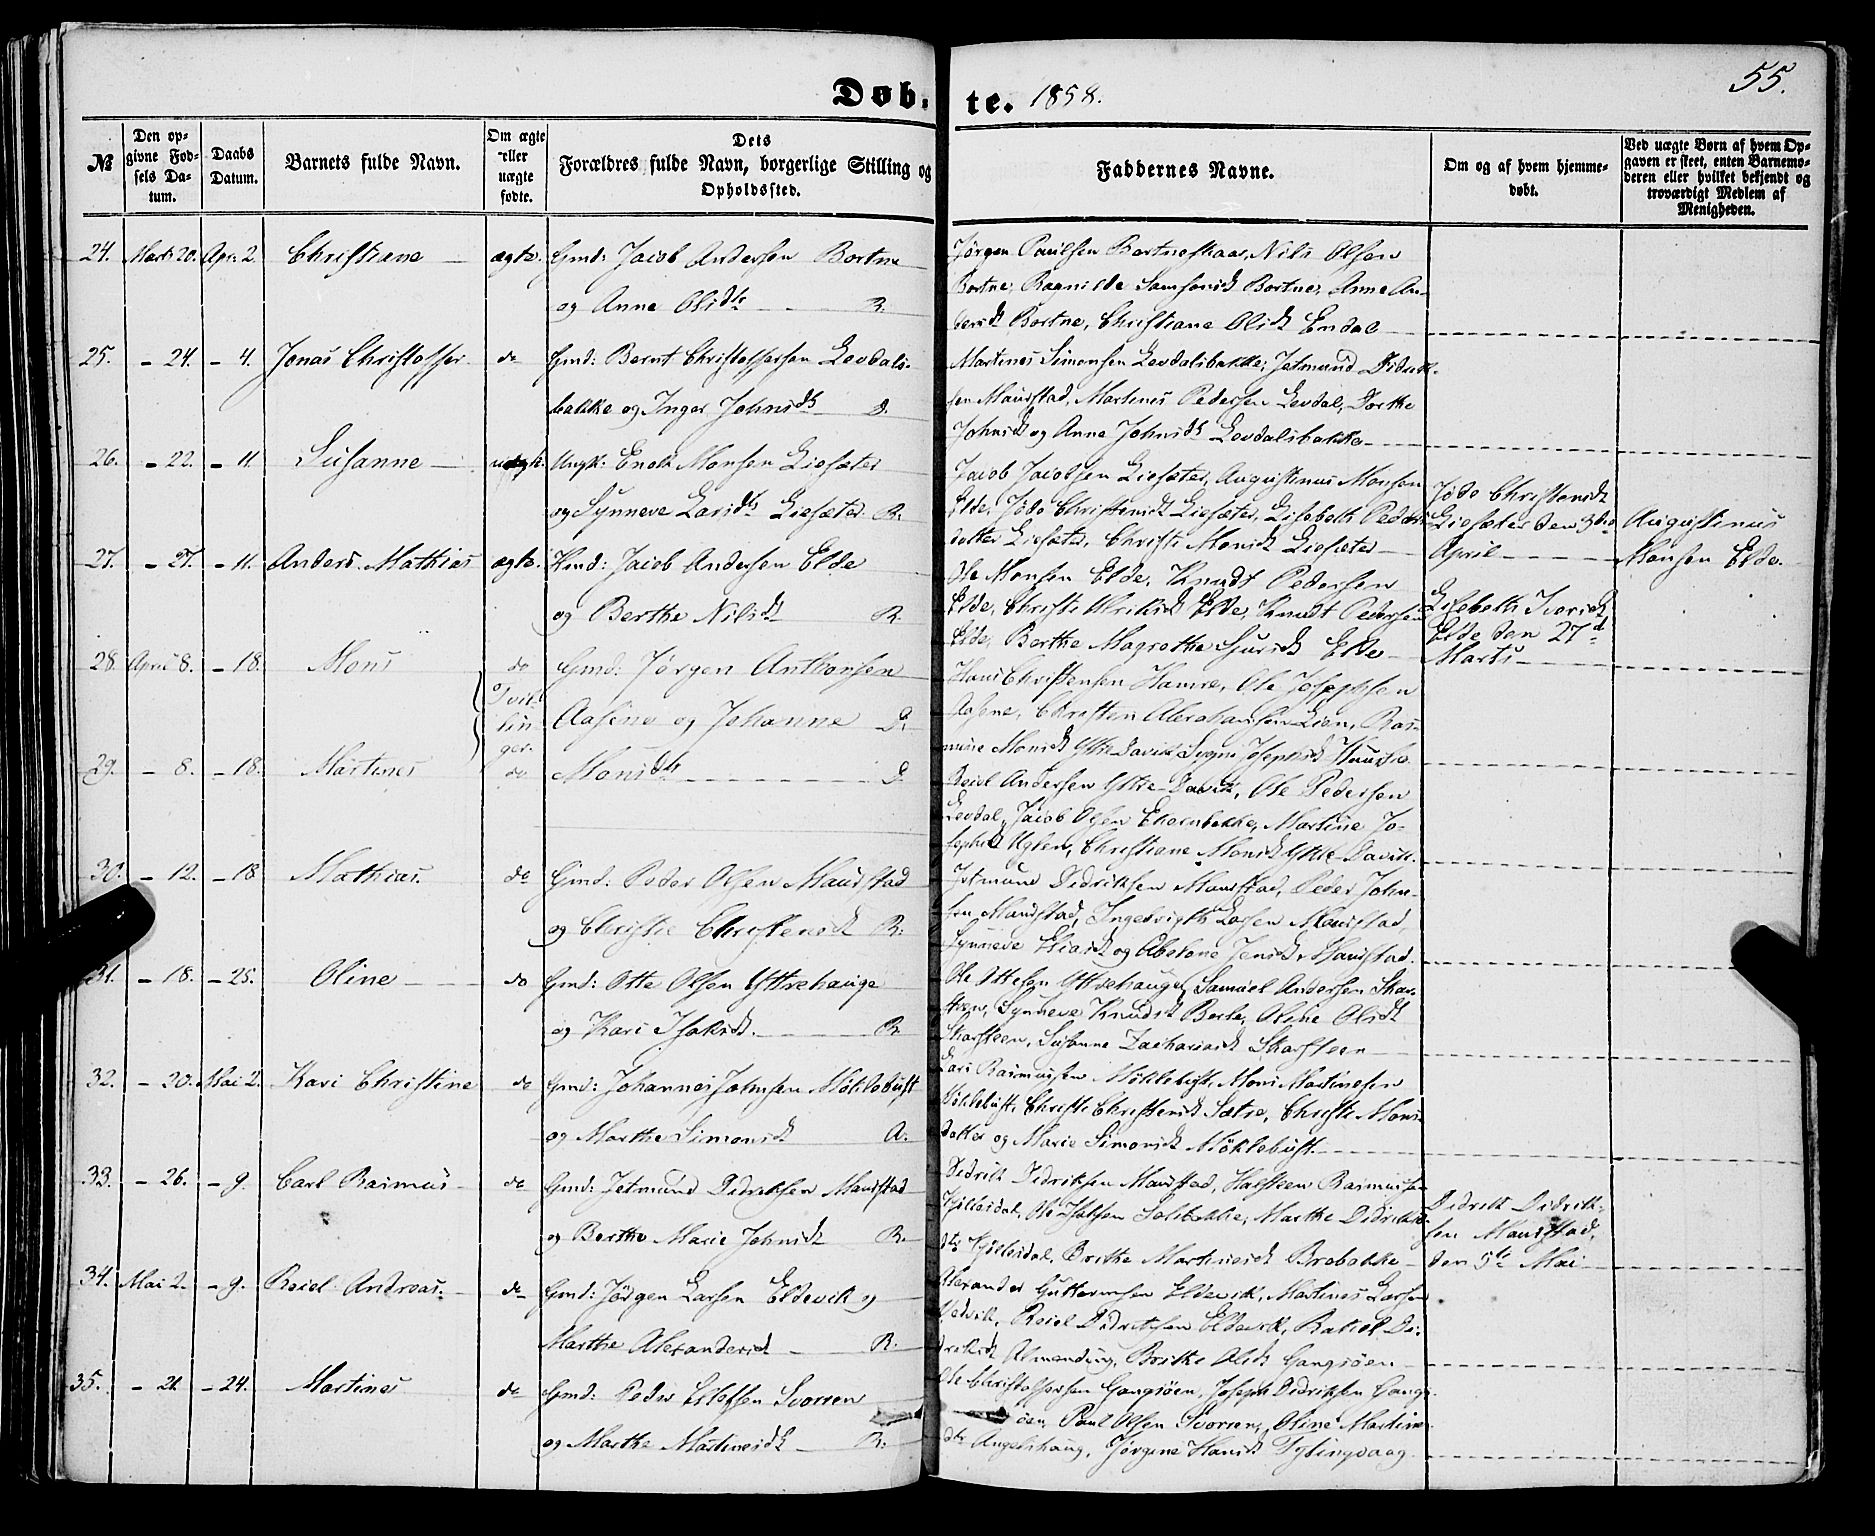 55.
Døb. te. 1858.
№
Den op-
givne Fød-
sels Da-
tum.
Daabs
Datum.
Barnets fulde Navn.
Om ægte
eller
uægte
fødte.
Dets
Forældres fulde Navn, borgerlige Stilling og
Opholdssted.
Faddernes Navne.
Om og af hvem hjemme-
døbt.
Ved uægte Børn af hvem Op-
gaven er skeet, enten Barnemo-
deren eller hvilket bekjendt og
troværdigt Medlem af
Menigheden.
24. Marts 20. Apr: 2. Christiane ægte. Gmd: Jacob Andersen Bortne
og Anne Olsdtr R.
Jørgen Paulsen Bortneskaar, Nils Olsen
Bortne, Ragnilde Samsonsdt Bortne, Anne An-
dersdt Bortne, Christiane Olsdt Endal
25. - 24. - 4. Jonas Christoffer do Gmd: Bernt Christoffersen Levdals-
bakke og Inger Johnsdtr D.
Martines Simonsen Levdalsbakke, Jetmund Didrik-
sen Maurstad, Martines Pedersen Levdal, Dorthe
Johnsdt og Anne Johnsdtr Levdalsbakke
26. - 22. - 11. Susanne uægte. Ungk: Enok Monsen Liesæter
og Synneve Larsdtr Liesæter R.
Jacob Jacobsen Liesæter, Augustinus Monsen
Elde, Jøde Christensdt Liesæter, Lisebeth Peders-
datter Liesæter, Christi Monsdt Liesæter
Jøde Christensdt
Liesæter den 3die
April
Augustinus
Monsen Elde.
27. - 27. - 11. Anders Mathias ægte. Hmd: Jacob Andersen Elde
og Berthe Nilsdt R.
Ole Monsen Elde, Knudt Pedersen
Elde, Christi Ulriksdt Elde, Knudt Pedersen
Elde, Berthe Magrethe Sjursdt Elde
Lisebeth Iversdt
Elde den 27d
Marts
28. April 8. - 18. Mons do Gmd: Jørgen Anthonsen
Tvil-
lin-
ger.
Aasene og Johanne D.
Hans Christensen Hamre, Ole Josephsen
Aasene, Christen Abrahamsen Lien, Ras-
mine Monsdt Ytre Davik, Josephsdt
29. - 8. - 18. Martines do Monsdtr D.
Reiel Andersen Ytre Davik, Ole Pedersen
Levdal, Jacob Olsen Ekornbakke, Martine Jo-
sephsdt Uglen, Christiane Monsdt Ytre Davik.
30. - 12. - 18 Mathias. do Gmd: Peder Olsen Maurstad
og Christie Christensdt R.
Jetmund Didriksen Maurstad, Peder John-
sen Maurstad, Ingebrigth Larsen Maurstad,
Synneve Eliasdt og Abelone Jensdt Maurstad.
31. - 18. - 25. Oline do Gmd: Otte Olsen Yttrehauge
og Kari Isaksdt. R.
Ole Ottesen Yttrehauge, Samuel Andersen Skar-
steen, Synneve Knudsdt Berle, Oline Olsdt
Skarsteen, Susanne Zachariasdt Skarsteen
32. - 20. Mai 2. Kari Christine do Gmd: Johannes Johnsen Möklebust
og Marthe Simonsdt A.
Lars Rasmussen Möklebust, Mons Martinesen
Möklebust, Christi Christensdt Sætre, Christi Mons-
datter og Marie Simonsdt Möklebust
33. - 26. - 9. Carl Rasmus do Gmd: Jetmund Didriksen Maurstad
og Berthe Marie Johnsdt R.
Didrik Didriksen Maurstad, Halsteen Rasmussen
Hjellesdal, Ole Isaksen Solibakke, Marthe Didriks-
dtr Hjellesdal, Brithe Martinesdt Brobakke
Didrik Didrik-
sen Maurstad,
den 5te Mai
34. Mai 2. - 9. Reiel Andreas. do Gmd: Jörgen Larsen Eldevik og
Marthe Alexandersd R.
Alexander Guttormsen Eldevik, Martines Larsen
Vedvik, Reiel Didriksen Eldevik, Rakel Di-
driksdt Almending, Brithe Olsdt Gangsöen
35. - 21. - 24. Martines do Gmd: Peder Ellefsen Svorren
og Marthe Martinesdt R.
Ole Christoffersen Gangsöen, Joseph Didriksen Gangs-
öen, Paul Olsen Svorren, Oline Martines-
dtr Angelshaug, Jörgine Hansdt Iglingvaag